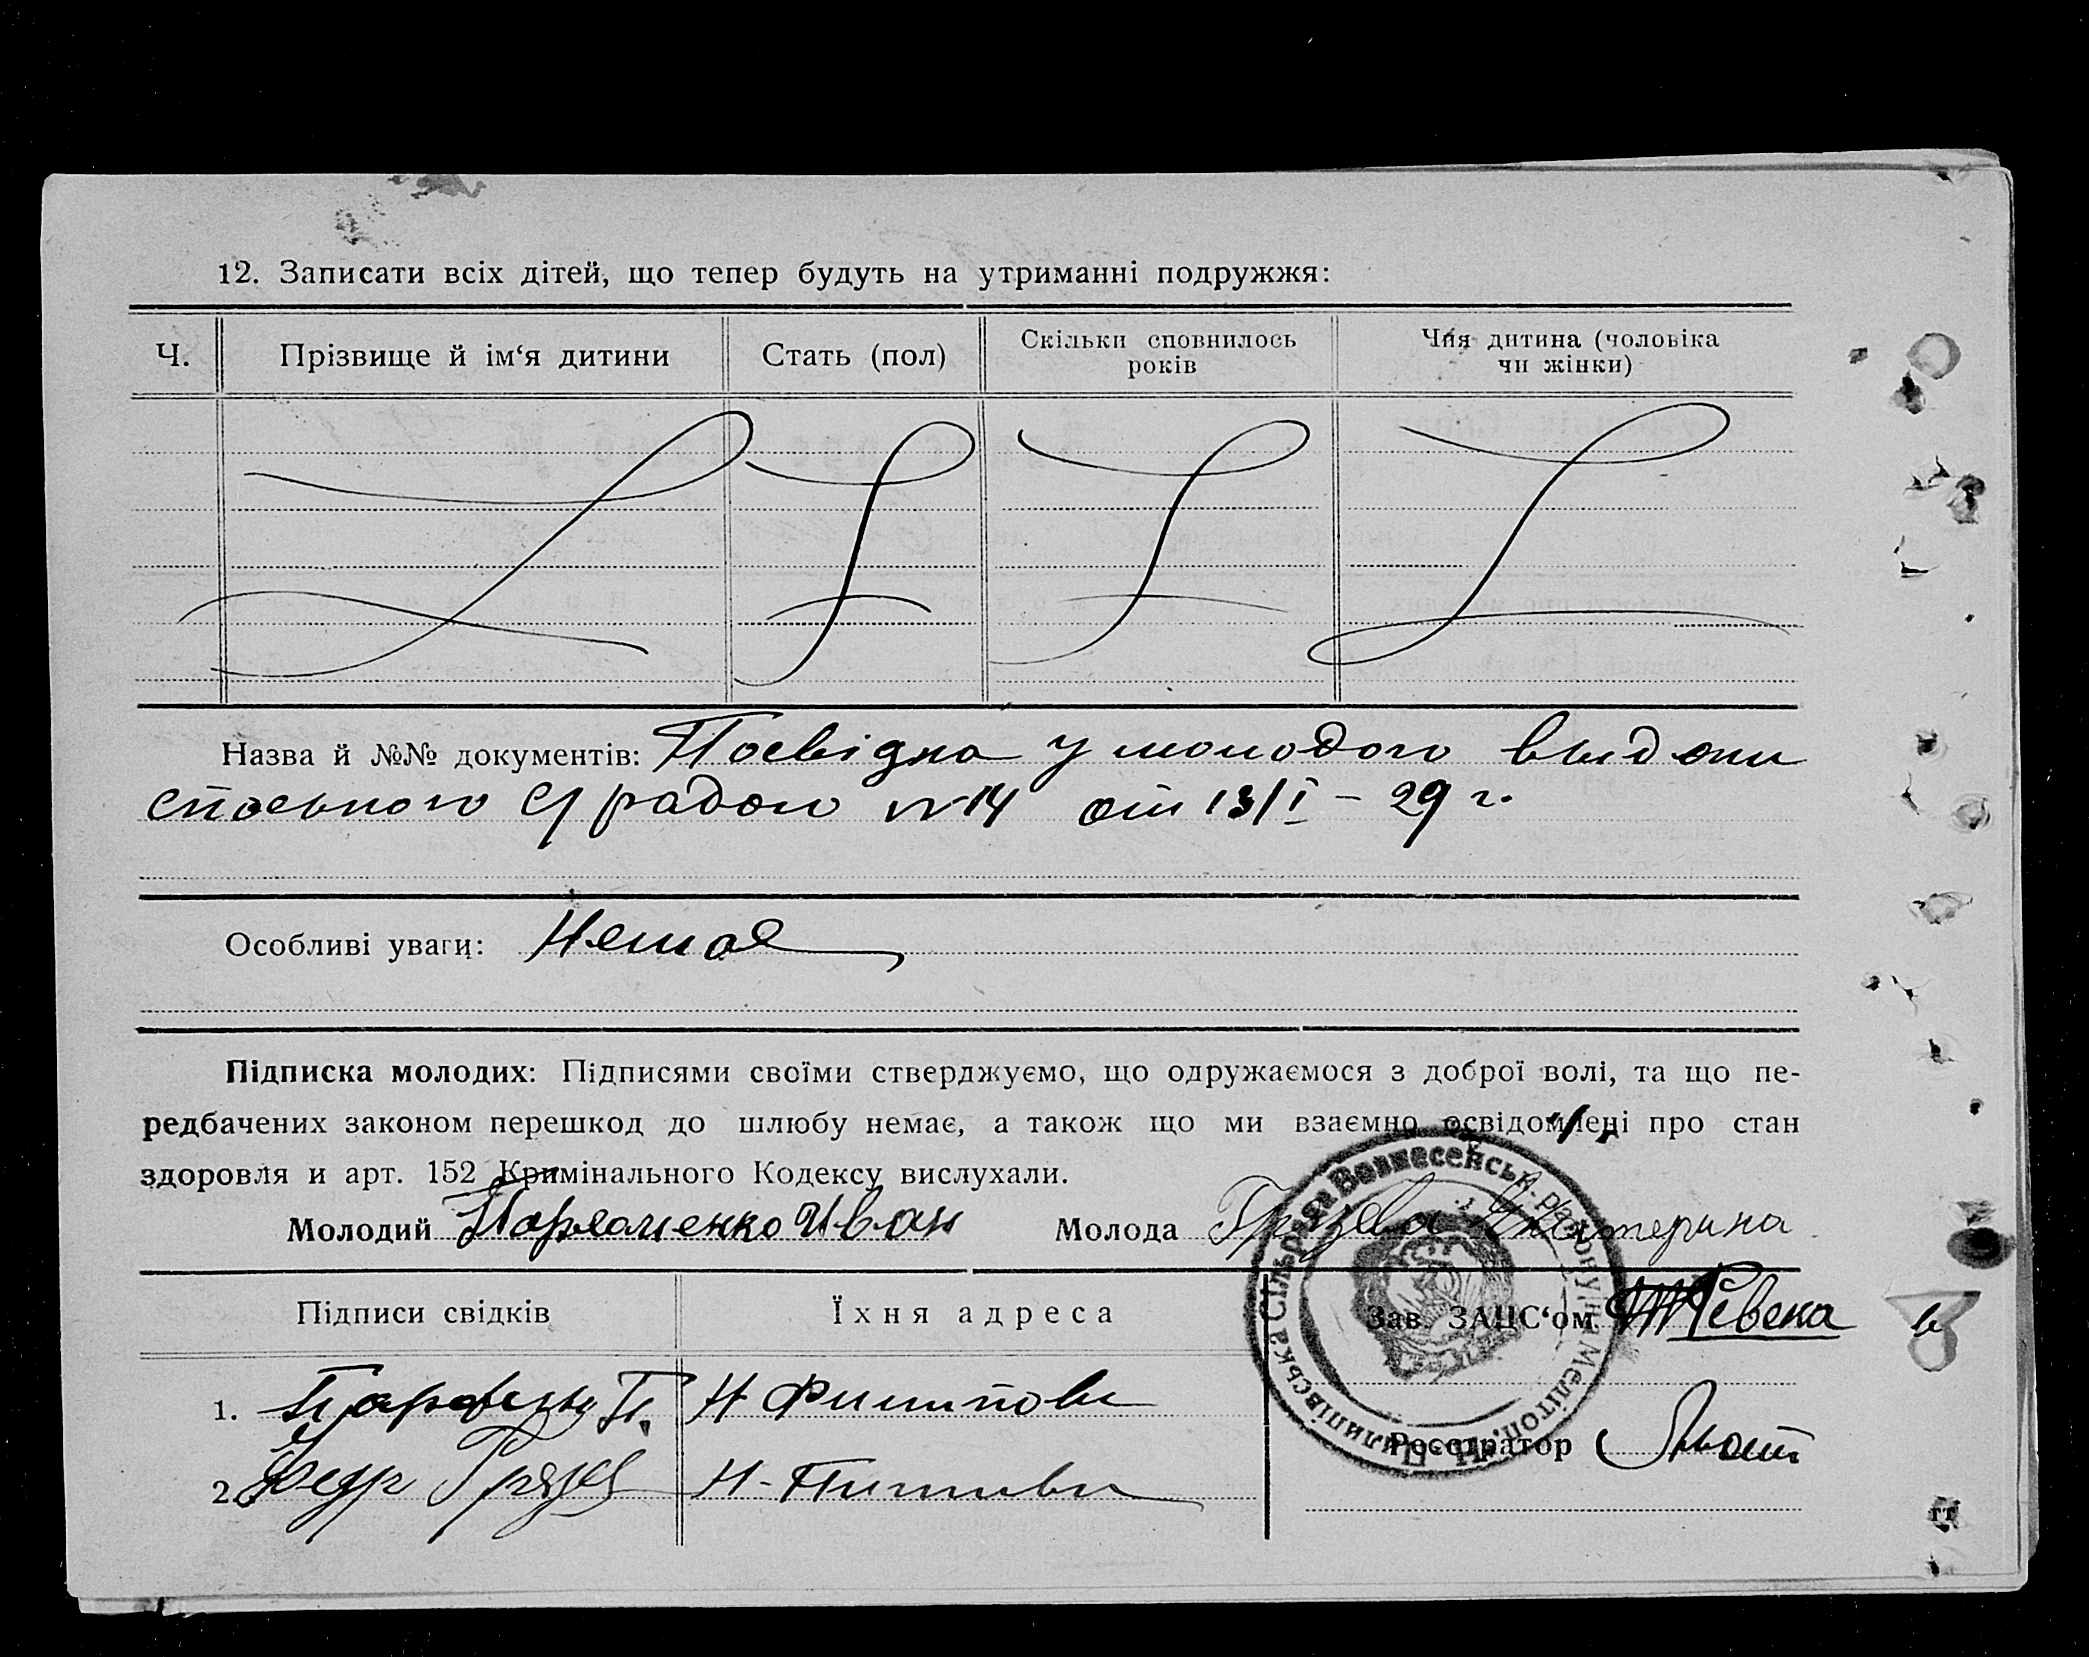 12. Записати всіх дітей, що тепер будуть на утриманні подружжя:
Ч.
Прізвище й ім‘я дитини
Стать (пол)
Скільки сповнилось
років
Чия дитина (чоловіка
чи жінки)
Назва й №№ документів: Посвідка у молодого выдани
сільрадою №14 от 13/I – 29 г.
Особливі уваги: Немає
Підписка молодих: Підписями своїми стверджуємо, що одружаємося з доброї волі, та що пе-
редбачених законом перешкод до шлюбу немає, а також що ми взаємно освідомлені про стан
здоровля и арт. 152 Кримінального Кодексу вислухали.
Молодий Иван Молода Грязева Екатерина
Підписи свідків
Їхня адреса
Зав. ЗАЦС‘ом
1. П. Н Филиповк
2. Федр Грязев Н-
Реєстратор
Н. Пилипівська Сільрада Вознесенськ. району на Мелітоп.